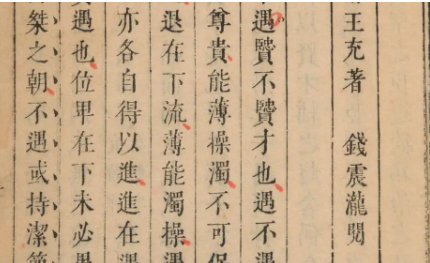 王充著　錢震瀧閱
遇賢不賢才也遇不遇
尊貴能薄操濁不可保
退在下流薄能濁操遇
亦各自得以進進在遇
遇也位卑在下未必愚
桀之朝不遇或持潔